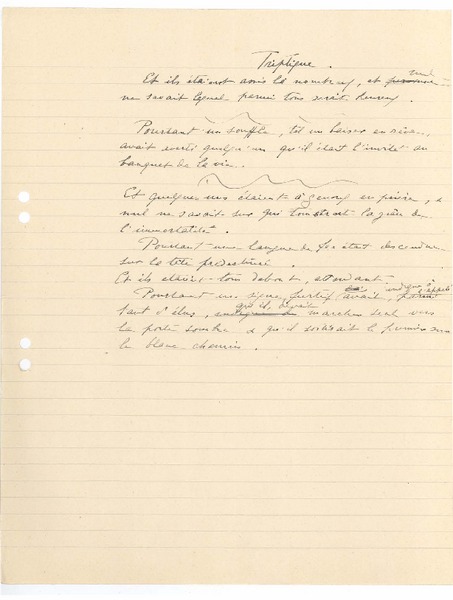 Triptyque.
Et ils étaient assis là nombreux, et nul
ne savait lequel parmi tous serait heureux.
Pourtant un souffle, tel un baiser en rêve,
avait averti quelqu'un qu'il était l'invité au
banquet de la vie.
Et quelques uns étaient à genoux en prière, &
nul ne savait sur qui tomberait la grâce de
l'immortalité.
Pourtant une langue de feu était descendue
sur la tête prédestinée.
Et ils étaient tous debout, attendant.
Pourtant un signe furtif avait indiqué à
tant d'élus, qu'il devait marcher seul vers
la porte sombre & qu'il sortirait le premier sur
le blanc chemin.